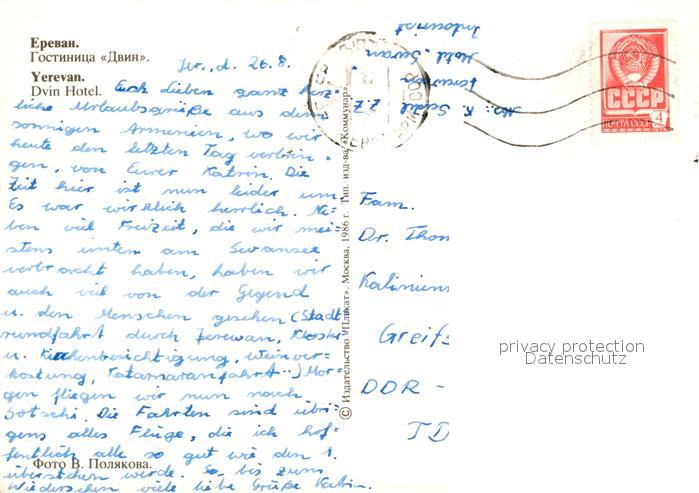 Ереван.
Гостиница «Двин».
Yerevan.
Dvin Hotel.
Jer., d. 26.8.
Euch Lieben ganz herz-
liche Urlaubsgrüße aus dem
sonnigen Armenien, wo wir
heute den letzten Tag verbrin-
gen, von Eurer Katrin. Die
Zeit hier ist nun leider um
Es war wirklich herrlich. Ne-
ben viel Freizeit, die wir mei-
stens unten am Sewansee
verbracht haben, haben wir
auch viel von der Gegend
u. den Menschen gesehen (Stadt
rundfahrt durch Jerewan, Kloster
u. Kirchenbesichtigung, Weinver-
kostung, Katamaranfahrt..) Mor-
gen fliegen wir nun nach
Sotschi. Die Fahrten sind übri-
gens alles Flüge, die ich hof-
fentlich alle so gut wie den 1.
überstehen werde. So, bis zum
Wiedersehen viele liebe Grüße Katrin.
Фото В. Полякова.
© Издательство «Плакат». Москва. 1986 г. Тип. изд-ва «Коммунар».
z.Z.
Hotel Sewan
СССР
ПОЧТА СССР
4
Fam.
Dr. Thom
Kalinin
Greifs
DDR -
privacy protection
Datenschutz